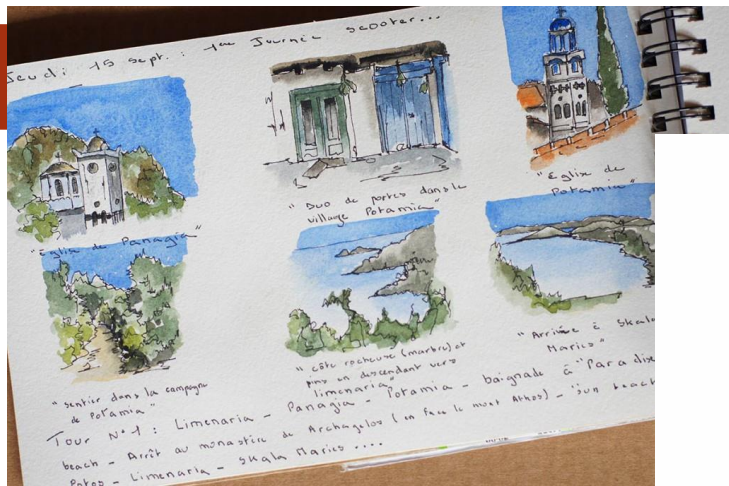 Jeudi 15 sept. : 1ère Journée scooter...
"Église de Panagia"
"Duo de portes dans le
village Potamia"
"Église de
Potamia"
"sentier dans la campagne
de Potamia"
"côte rocheuse (marbre) et
pins en descendant vers
limenaria"
"Arrivée à Skala
Maries"
Tour N°1 : Limenaria - Panagia - Potamia - baignade à "Paradise
beach - Arrêt au monastère de Archagelos (en face le mont Athos) - "sun beach
Potos - Limenaria - Skala Maries ....